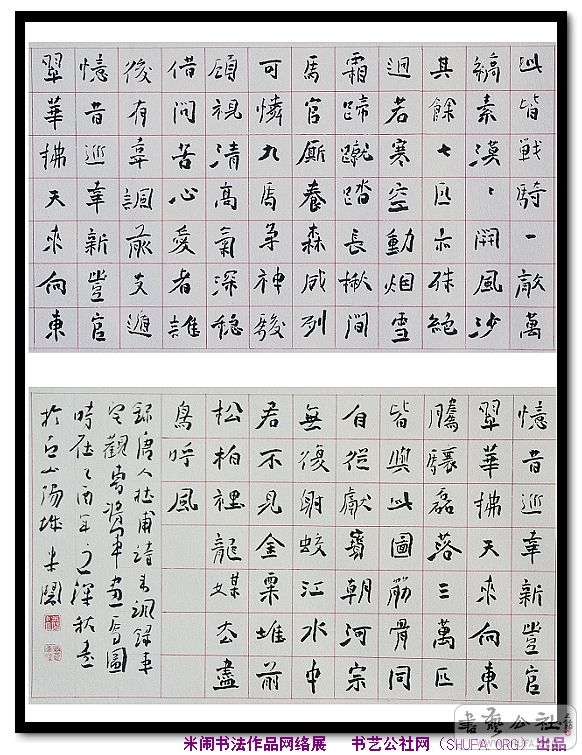 此皆戦騎一敵萬
縞素漠、開風沙
其餘七匹亦殊絕
迥若寒空動烟雪
霜蹄蹴踏長楸間
馬官廝養森成列
可憐九馬爭神駿
顧視清高氣深穩
借問苦心愛者誰
後有韋諷前支遁
憶昔巡幸新豐宮
翠華拂天來向東
憶昔巡幸新豐宮
翠華拂天來向東
騰驤磊落三萬匹
皆與此圖筋骨同
自從獻寶朝河宗
無復射蛟江水中
君不見金粟堆前
松柏裡龍媒去盡
鳥呼風
錄唐人杜甫詩韋諷錄事
宅觀曹將軍畫馬圖
時在乙酉年之深秋書
於山陽城 米鬧
書藝公社
米闹书法作品网络展 书艺公社网（SHUFA.ORG）出品